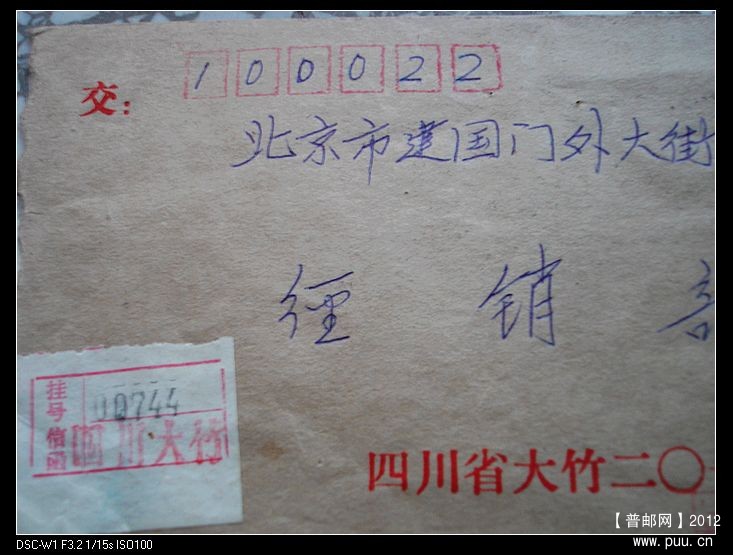 100022
交：
北京市建国门外大街
经 销
挂号信函
00744
四川大竹
四川省大竹二〇
【普邮网】2012
www.puu.cn
DSC-W1 F3.2 1/15s ISO100